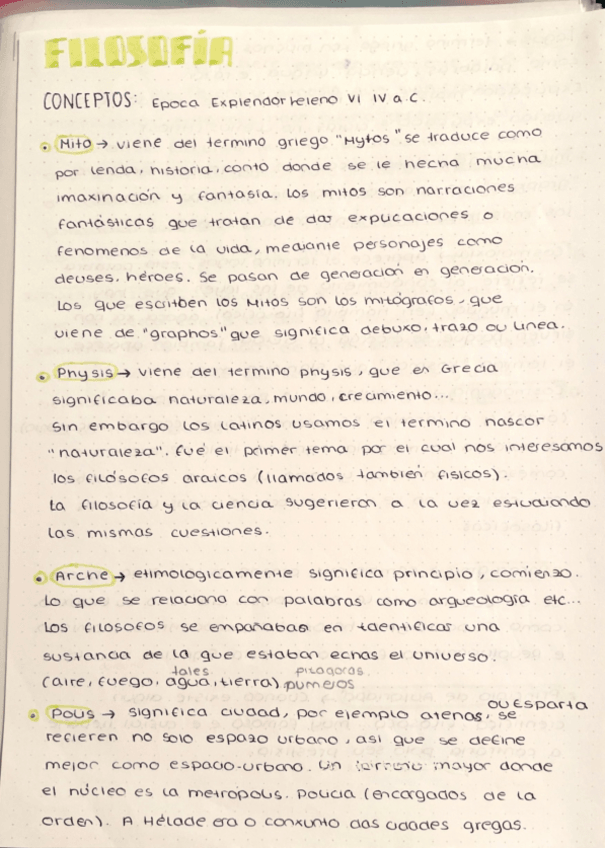 FILOSOFÍA
CONCEPTOS: Epoca Explendor heleno VI IV a.C.
• Mito → viene del termino griego "Mytos" se traduce como
por lenda, historia, conto donde se le hecha mucha
imaxinación y fantasia. Los mitos son narraciones
fantásticas que tratan de dar explicaciones o
fenomenos de la vida, mediante personajes como
deuses, héroes. Se pasan de generación en generación.
Los que escriben los Mitos son los mitógrafos, que
viene de "graphos" que significa debuxo, trazo ou linea.
• Physis → viene del termino physis, que en Grecia
significaba naturaleza, mundo, crecimiento...
Sin embargo los latinos usamos el termino nascor
"naturaleza". Fué el primer tema por el cual nos interesamos
los filósofos araicos (llamados también fisicos).
La filosofía y la ciencia sugerieron a la vez estudiando
las mismas cuestiones.
• Arche → etimologicamente significa principio, comienzo.
Lo que se relaciona con palabras como arqueología etc...
Los filosofos se empañaban en identificar una
sustancia de la que estaban echas el universo.
tales pitagoras
(aire, fuego, agua, tierra) numeros
• Polis → significa ciudad, por ejemplo atenas, ou Esparta se
refieren no solo espazo urbano, asi que se define
mejor como espacio-urbano. Un terreno mayor donde
el núcleo es la metropolis. Policia (encargados de la
orden). A Hélade era o conxunto das cidades gregas.